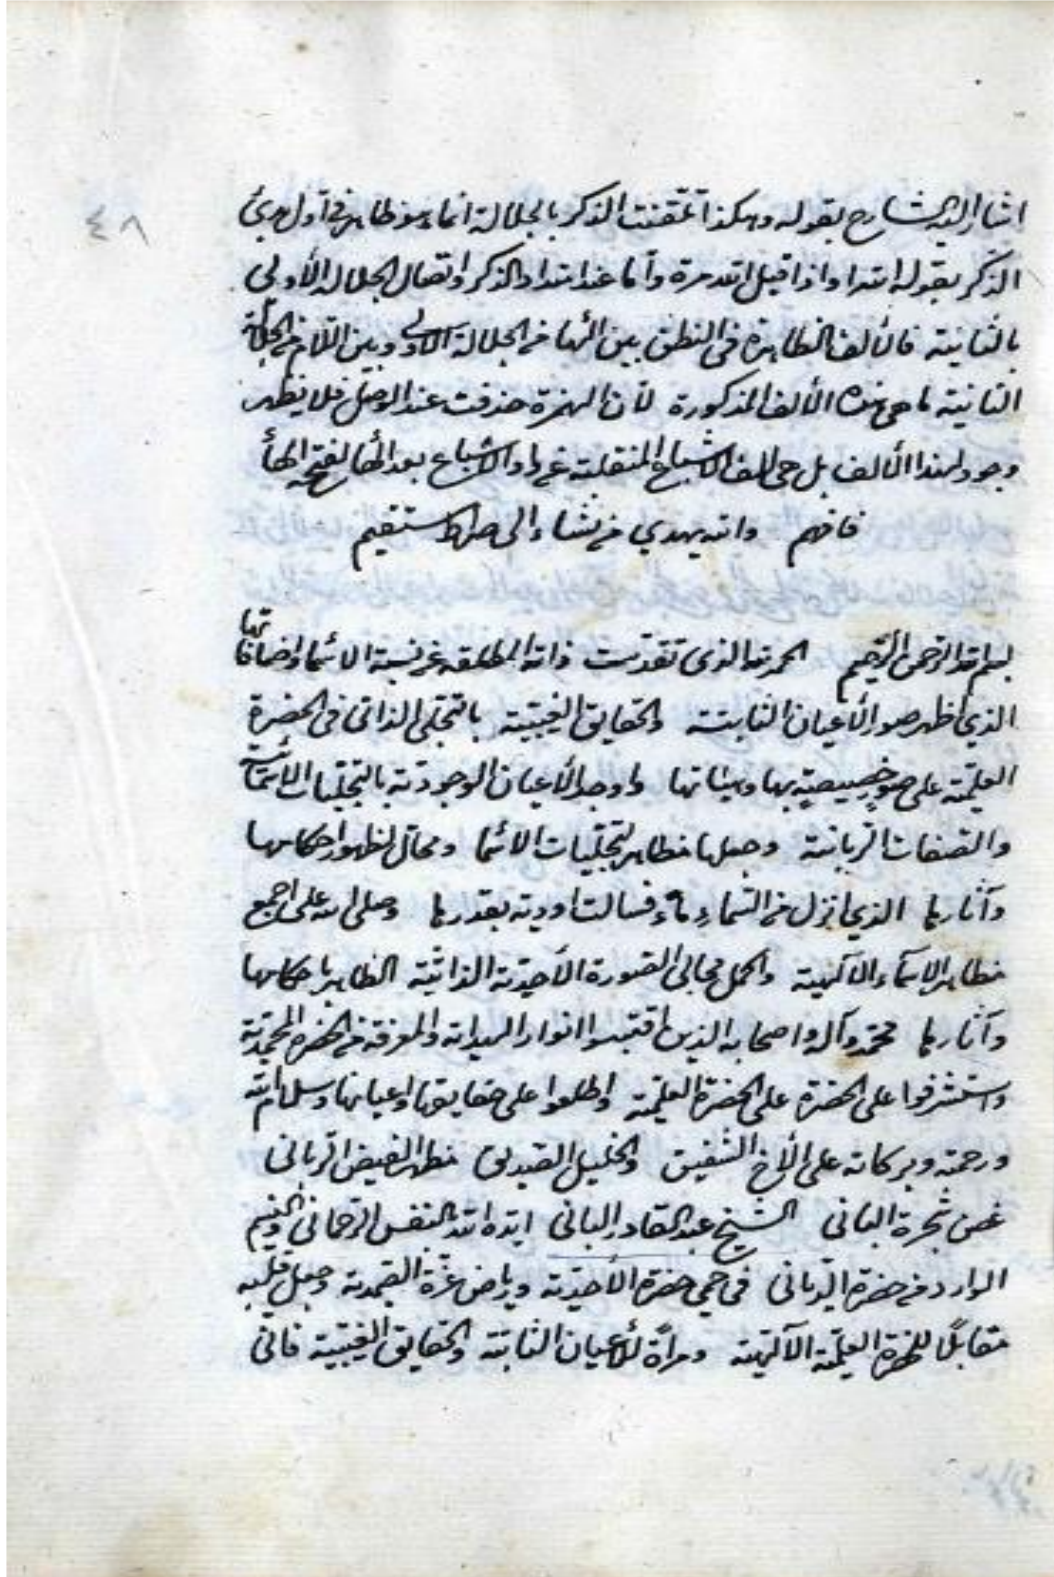 ٤٨
اشار اليه الشارح بقوله وهكذا الذكر بالجلالة انما هو ظاهر في اول
الذكر بقوله ابتدا واذا قيل الله مرة واما عند امتداد الذكر واتصال الجلالة الأولى
بالثانية فالألف الظاهرة في النطق بين الهاء من الجلالة الاولى وبين اللام من الجلالة
الثانية ما هي هذه الألف المذكورة لأن الهمزة حذفت عند الوصل فلا يظهر
وجود لهذا الألف بل هي الف الاشباع المنقلبة عن واو الاشباع بعد الهاء لفتح الهاء
فافهم والله يهدي من يشاء الى صراط مستقيم
بسم الله الرحمن الرحيم الحمد لله الذي تقدست ذاته المطلقه عن نسبة الاسما واضافاتها
الذي اظهر صور الأعيان الثابتة والحقايق الغيبية بالتجلي الذاتي في الحضرة
العلمية على صور وهيئاتها واوجد الأعيان الوجودية بالتجليات الأسمائية
والصفات الربانية وجعلها مظاهر لتجليات الاسما ومحال لظهور احكامها
وآثارها الذي انزل من السماء ماء فسالت اودية بقدرها وصلى الله على اجمع
مظاهر الاسماء الآلهية واكمل مجالي الصورة الأحدية الذاتية الظاهر باحكامها
وآثارها محمد وآله واصحابه الذين اقتبسوا انوار والمعرفة من الحضرة المحمدية
واستشرفوا على الحضرة على الحضرة العلمية واطلعوا على حقايقها واعيانها وسلام الله
ورحمته وبركاته على الأخ الشفيق والخليل الصديق مظهر الفيض الرباني
غصن شجرة الباني الشيخ عبد القادر الباني ايده الله بالنفس الرحماني
الوارد من حضرة في حمى حضرة الأحدية ورياض الصمدية وجعل قلبه
مقابلًا للحضرة العلمية الآلهية ومرآة للأعيان الثابتة والحقايق الغيبية فاني